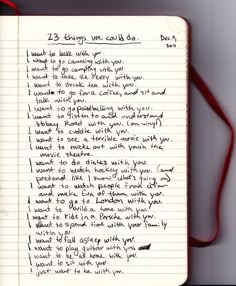 23 things we could do.
Dec. 9, 2011
I want to bake with you.
I want to go canoeing with you.
I want to go camping with you.
I want to take the ferry with you.
I want to drink tea with you.
I want to go for a coffee, and sit and
talk with you.
I want to go paintballing with you.
I want to listen to and understand
Abbey Road with you. (on vinyl)
I want to cuddle with you.
I want to see a terrible movie with you.
I want to make out with you in the
movie theatre.
I want to do dishes with you.
I want to watch hockey with you. (and
pretend like I know what's going on)
I want to watch people from afar
and make fun of them with you.
I want to go to London with you.
I want to build a home with you.
I want to ride in a Porsche with you.
I want to spend time with your family
with you.
I want to fall asleep with you.
I want to play guitar with you
I want to be at home with you.
I want to sit with you.
I just want to be with you.